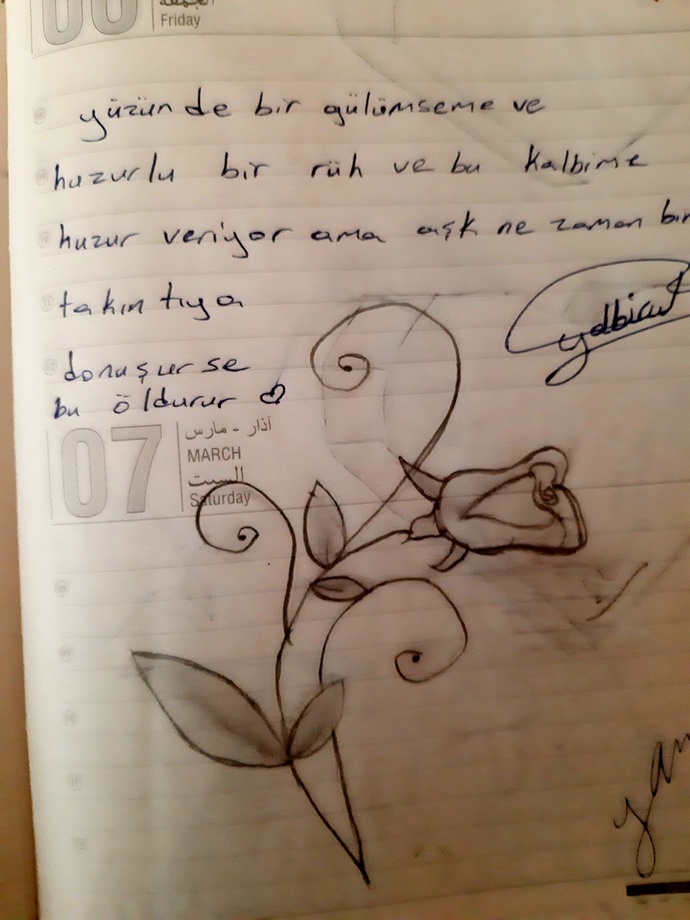 الجمعة
06
Friday
yüzünde bir gülümseme ve
huzurlu bir rüh ve bu kalbime
huzur veriyor ama aşk ne zaman bir
takıntıya
donuşurse
bu öldurur ♡
07
آذار - مارس
MARCH
السبت
Saturday
yan